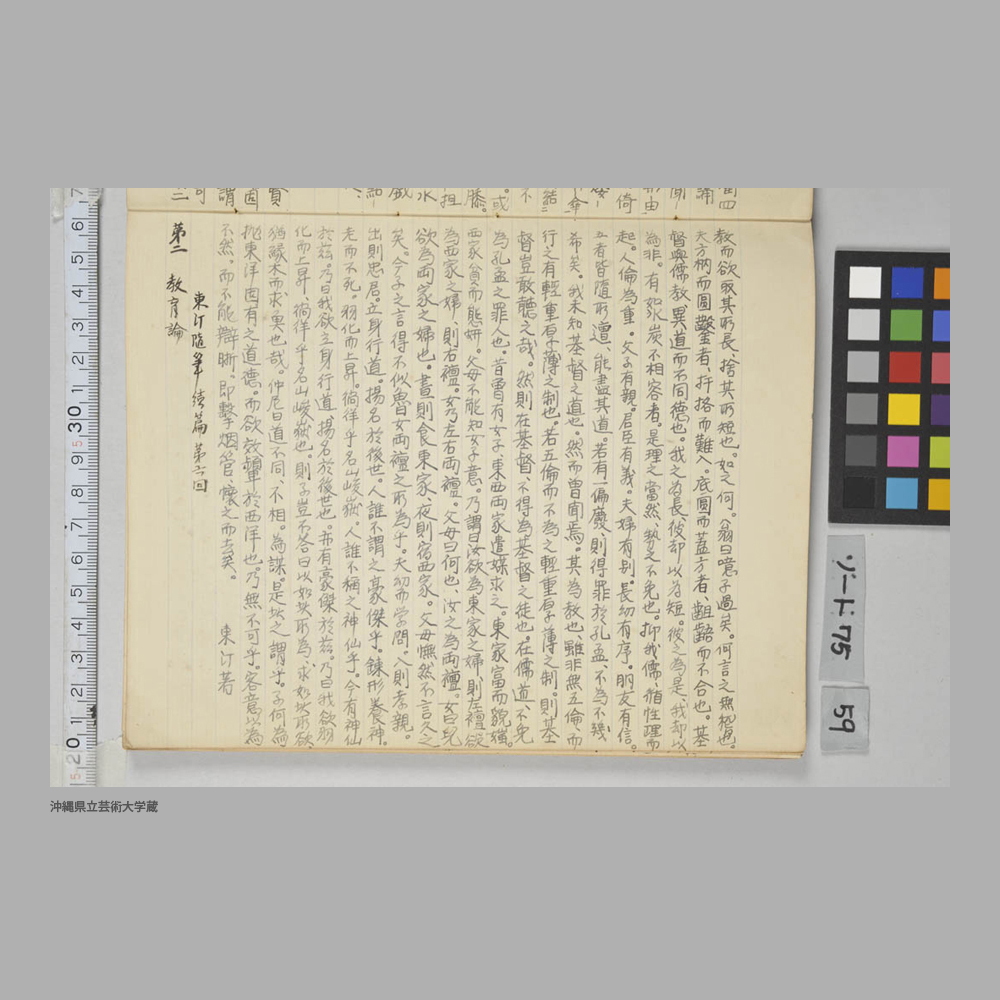 教而欲取其所長、捨其所短也。如之何。翁曰噫、子過矣。何言之無稽也。
夫方柄而圓鑿者、扞格而難入。底圓而蓋方者、齟齬而不合也。基
督與儒教異道而不同德也。我之為長彼却以為短。彼之為是、我却以
為非。有如氷炭不相容者。是理之當然、勢之不免也。抑我儒循性理而
起。人倫為重。父子有親。君臣有義。夫婦有別。長幼有序。朋友有信。
五者皆隨所遭、能盡其道。若有一偏廢、則得罪於孔孟、不為不幾
希矣。我未知基督之道也。然而曽聞焉。其為教也、雖非無五倫、而
行之有輕重厚薄之制也。若五倫而不為之輕重厚薄之制。則基
督豈敢聽之哉。然則在基督、不得為基督之徒也。在儒道、不免
為孔孟之罪人也。昔魯有女子、東西両家遣媒求之。東家富而貌孀。
西家貧而態妍。父母不能知女子意。乃謂曰汝欲為東家之婦、則左襢欲
為西家之婦、則右襢。女乃左右両襢。父母曰何也、汝之為両襢。女曰兒
欲為両家之婦也。晝則食東家、夜則宿西家。父母憮然不言久之
矣。今子之言得不似魯女両襢之所為乎。夫幼而学問。入則孝親。
出則忠君。立身行道。揚名於後世。人誰不謂之豪傑乎。錬形養神。
老而不死。羽化而上昇。徜徉乎名山峻嶽。人誰不稱之神仙乎。今有神仙
於茲。乃曰我欲立身行道、揚名於後世也。亦有豪傑於茲。乃曰我欲羽
化而上昇、徜徉乎名山峻嶽也。則子豈不答曰以如此所為、求如此所欲
猶縁木而求魚也哉。仲尼曰道不同、不相。為謀。是此之謂乎。子何為
抛東洋固有之道德。而欲效顰於西洋也。乃無不可乎。客意以為
不然。而不能辯晰。即擊烟管、懐之而去矣。 東汀著
東汀随筆 續篇 第六回
第二 教育論